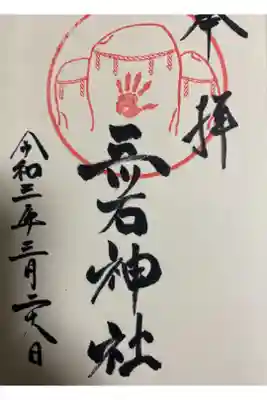 奉拝
三石神社
令和三年三月二十八日